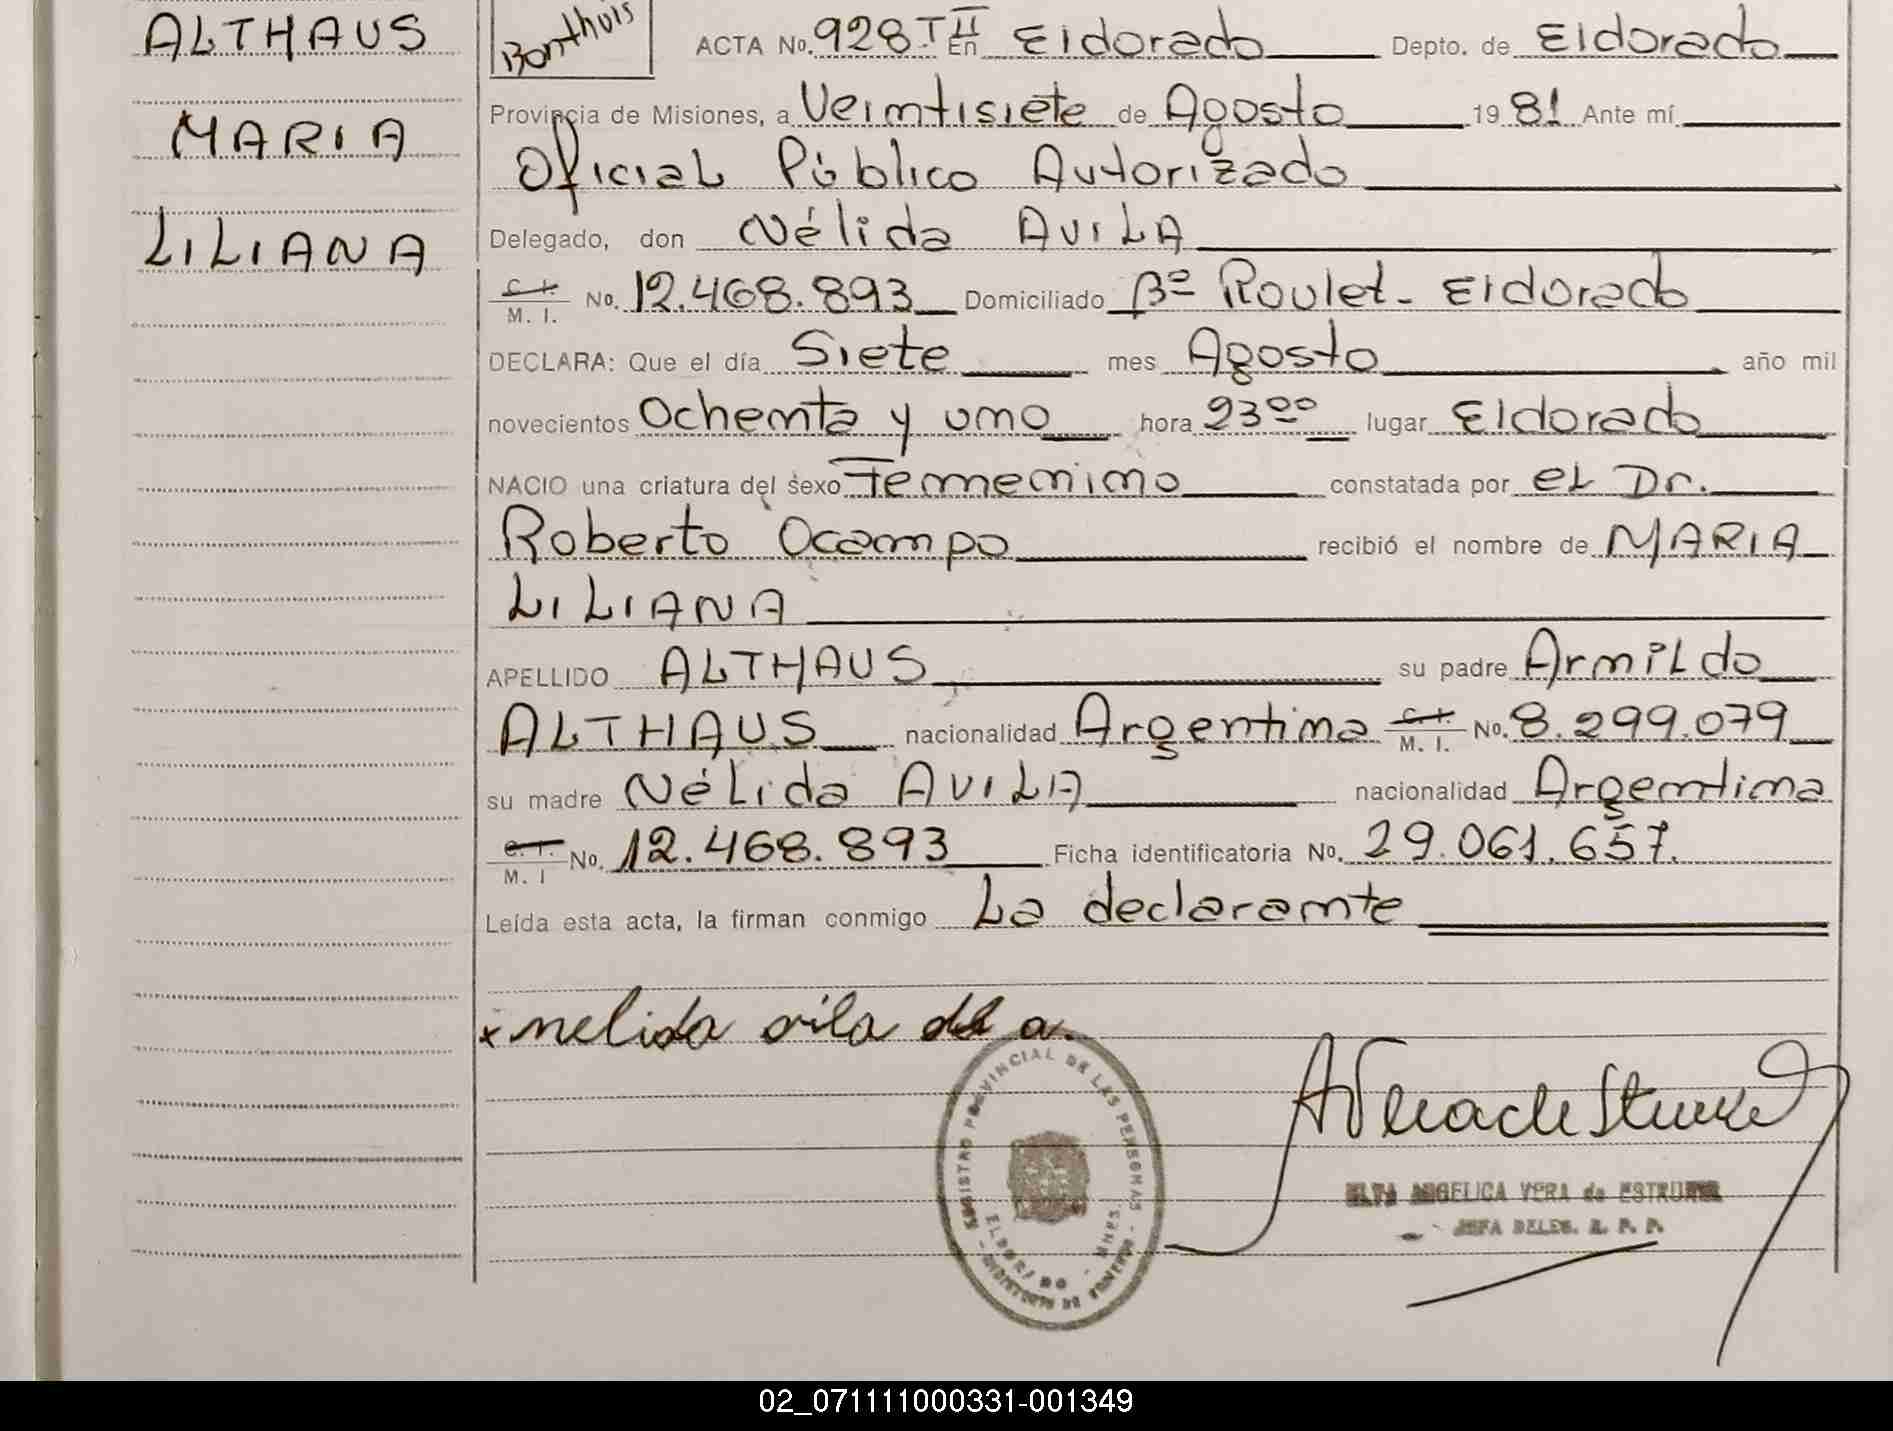 ALTHAUS
MARIA
LILIANA
Bonthuis
ACTA No. 928 T II En Eldorado Depto. de Eldorado
Provincia de Misiones, a Veintisiete de Agosto 1981 Ante mí
Oficial Público Autorizado
Delegado, don Nélida AVILA
C. I. M. I. No. 12.468.893 Domiciliado Bº Roulet - Eldorado
DECLARA: Que el día Siete mes Agosto año mil
novecientos Ochenta y uno hora 23ºº lugar Eldorado
NACIO una criatura del sexo Femenino constatada por el Dr.
Roberto Ocampo recibió el nombre de MARIA
LILIANA
APELLIDO ALTHAUS su padre Armildo
ALTHAUS nacionalidad Argentina C. I. M. I. No. 8.299.079
su madre Nélida AVILA nacionalidad Argentina
C. I. M. I No. 12.468.893 Ficha identificatoria No. 29.061.657.
Leída esta acta, la firman conmigo La declarante
x nelida vila de a.
REGISTRO PROVINCIAL DE LAS PERSONAS
ELDORADO - MNES.
ANGELICA VERA de
JEFA DELEG. R. P. P.
02_071111000331-001349